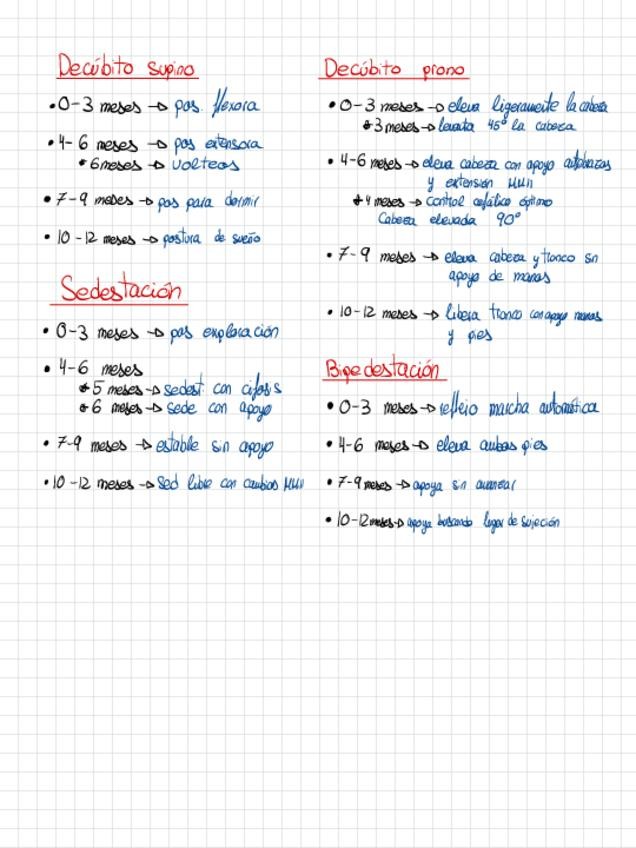 Decúbito supino
• 0-3 meses → pos. flexora
• 4-6 meses → pos extensora
* 6 meses → volteos
• 7-9 meses → pos para dormir
• 10-12 meses → postura de sueño
Sedestación
• 0-3 meses → pos exploración
• 4-6 meses
* 5 meses → sedest. con cifosis
* 6 meses → sede con apoyo
• 7-9 meses → estable sin apoyo
• 10-12 meses → sed libre con cambios
Decúbito prono
• 0-3 meses → eleva ligeramente la cabeza
* 3 meses → levanta 45º la cabeza
• 4-6 meses → eleva cabeza con apoyo
y extensión
* 4 meses → control cefálico óptimo
Cabeza elevada 90º
• 7-9 meses → eleva cabeza y tronco sin
apoyo de manos
• 10-12 meses → libera tronco con apoyo manos
y pies
Bipedestación
• 0-3 meses → reflejo marcha automática
• 4-6 meses → eleva ambos pies
• 7-9 meses → apoya sin avanzar
• 10-12 meses → apoya buscando lugar de sujeción